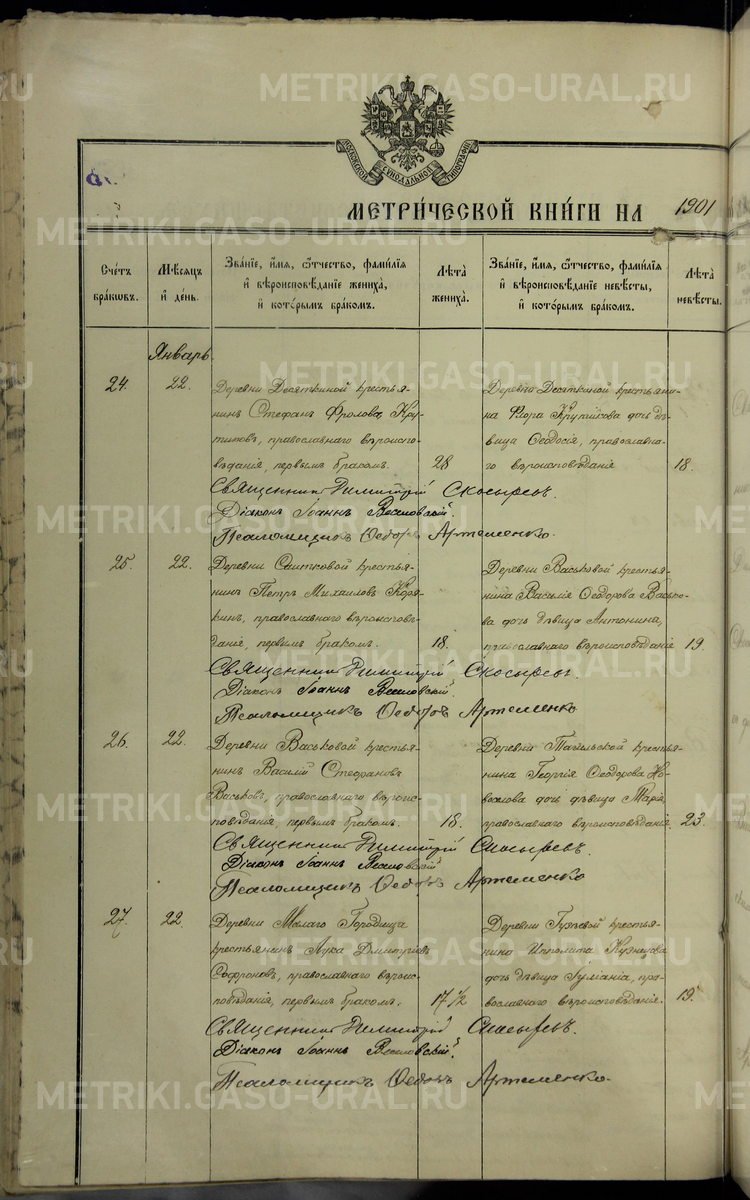 METRIKI.GASO-URAL.RU
МОСКОВСКОЙ СѴНОДАЛЬНОЙ ТИПОГРАФІИ
МЕТРИ́ЧЕСКОЙ КНИ́ГИ НА 1901
Сче́тъ бра́кѡвъ.
Мѣ́сѧцъ и҆ де́нь.
Зва́нїе, и҆́мѧ, ѻ҆́тчество, фами́лїѧ
и҆ вѣроисповѣ́данїе жениха̀,
и҆ кото́рымъ бра́комъ.
Лѣ́та жениха̀.
Зва́нїе, и҆́мѧ, ѻ҆́тчество, фами́лїѧ
и҆ вѣроисповѣ́данїе невѣ́сты,
и҆ кото́рымъ бра́комъ.
Лѣ́та невѣ́сты.
Январь.
24. 22.
Деревни Десяткиной крестья-
нинъ Стефанъ Фроловъ Кру-
тиковъ, православнаго вѣроиспо-
вѣданія, первымъ бракомъ. 28
Деревни Десяткиной крестьяни-
на Флора Крутикова дочь дѣ-
вица Ѳеодосія, православна-
го вѣроисповѣданія 18.
Священникъ Димитрій Скосыревъ.
Діаконъ Іоаннъ Веселовскій.
Псаломщикъ Ѳедоръ Артеменко.
25. 22.
Деревни крестья-
нинъ Петръ Михаиловъ Коря-
кинъ, православнаго вѣроисповѣ-
данія, первымъ бракомъ. 18.
Деревни Васьковой крестья-
нина Василія Ѳеодорова Васько-
ва дочь дѣвица Антонина,
православнаго вѣроисповѣданія 19.
Священникъ Димитрій Скосыревъ.
Діаконъ Іоаннъ Веселовскій.
Псаломщикъ Ѳедоръ Артеменко
26. 22.
Деревни Васьковой крестья-
нинъ Василій Стефановъ
Васьковъ, православнаго вѣроис-
повѣданія, первымъ бракомъ. 18.
Деревни Тагильской крестья-
нина Георгія Ѳеодорова Но-
воселова дочь дѣвица Марія,
православнаго вѣроисповѣданія. 23.
Священникъ Димитрій Скосыревъ.
Діаконъ Іоаннъ Веселовскій
Псаломщикъ Ѳедоръ Артеменко
27. 22
Деревни Малаго Городища
крестьянинъ Лука Димитріевъ
Софроновъ, православнаго вѣроис-
повѣданія, первымъ бракомъ. 17 1/2
Деревни Гуевой крестья-
нина Ипполита Кузнецова
дочь дѣвица Іуліанія, пра-
вославнаго вѣроисповѣданія. 19.
Священникъ Димитрій Скосыревъ.
Діаконъ Іоаннъ Веселовскій.
Псаломщикъ Ѳедоръ Артеменко.